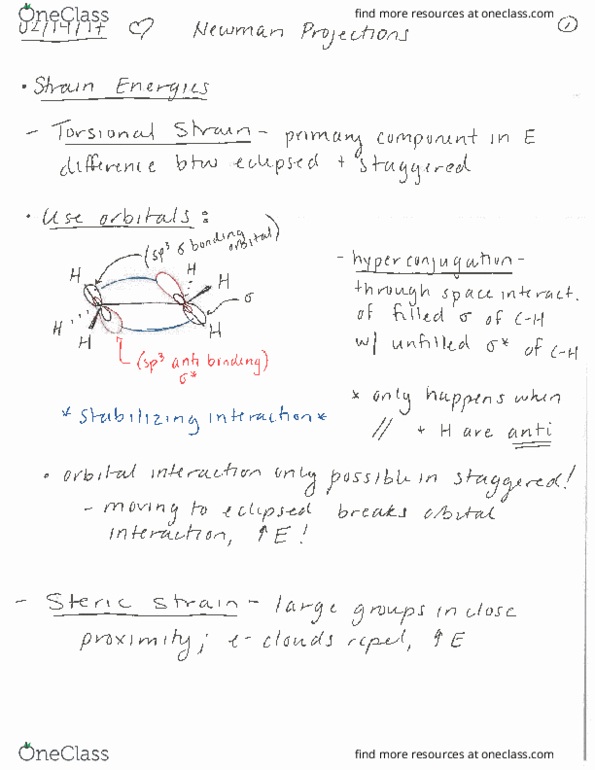 OneClass
find more resources at oneclass.com
02/14/17 ♡ Newman Projections 1
• Strain Energies
- Torsional Strain - primary component in E
difference btw eclipsed + staggered
• Use orbitals:
(sp³ σ bonding
orbital)
H
H
H
σ
H
H
H
(sp³ anti binding)
σ*
* Stabilizing interaction *
- hyperconjugation -
through space interact.
of filled σ of C-H
w/ unfilled σ* of C-H
* only happens when
// + H are anti
• orbital interaction only possible in staggered!
- moving to eclipsed breaks orbital
interaction, ↑E!
- Steric Strain - large groups in close
proximity; e- clouds repel, ↑E
OneClass
find more resources at oneclass.com